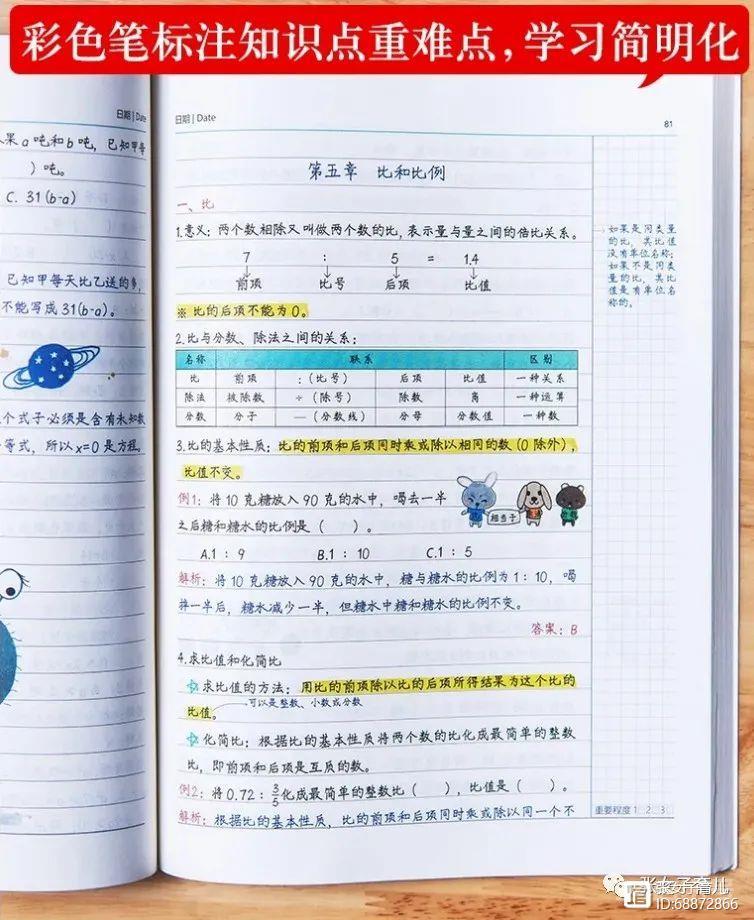 彩色笔标注知识点重难点,学习简明化
日期 | Date
果 a 吨和 b 吨，已知甲每
）吨。
C. 31(b-a)
已知甲每天比乙送的多，
不能写成 31(b-a)。
个式子必须是含有未知数
等式，所以 x=0 是方程。
日期 | Date
81
第五章 比和比例
一、比
1.意义：两个数相除又叫做两个数的比，表示量与量之间的倍比关系。
7 : 5 = 1.4
前项 比号 后项 比值
※ 比的后项不能为 0。
如果是同类量
的比，其比值
没有单位名称；
如果不是同类
量的比，其比
值是有单位名
称的。
2.比与分数、除法之间的关系：
名称 联系 区别
比 前项 :（比号） 后项 比值 一种关系
除法 被除数 ÷（除号） 除数 商 一种运算
分数 分子 —（分数线） 分母 分数值 一种数
3.比的基本性质：比的前项和后项同时乘或除以相同的数（0 除外），
比值不变。
例1：将 10 克糖放入 90 克的水中，喝去一半
之后糖和糖水的比例是（ ）。
相当于
A.1：9 B.1：10 C.1：5
解析：将 10 克糖放入 90 克的水中，糖与糖水的比例为 1：10，喝
掉一半后，糖水减少一半，但糖水中糖和糖水的比例不变。
答案：B
4.求比值和化简比
求比值的方法：用比的前项除以比的后项所得结果为这个比的
比值。
可以是整数、小数或分数
化简比：根据比的基本性质将两个数的比化成最简单的整数
比，即前项和后项是互质的数。
例2：将 0.72：3/5 化成最简单的整数比（ ），比值是（ ）。
解析：根据比的基本性质，比的前项和后项同时乘或除以同一个不
重要程度 1 2 3
ID:68872866